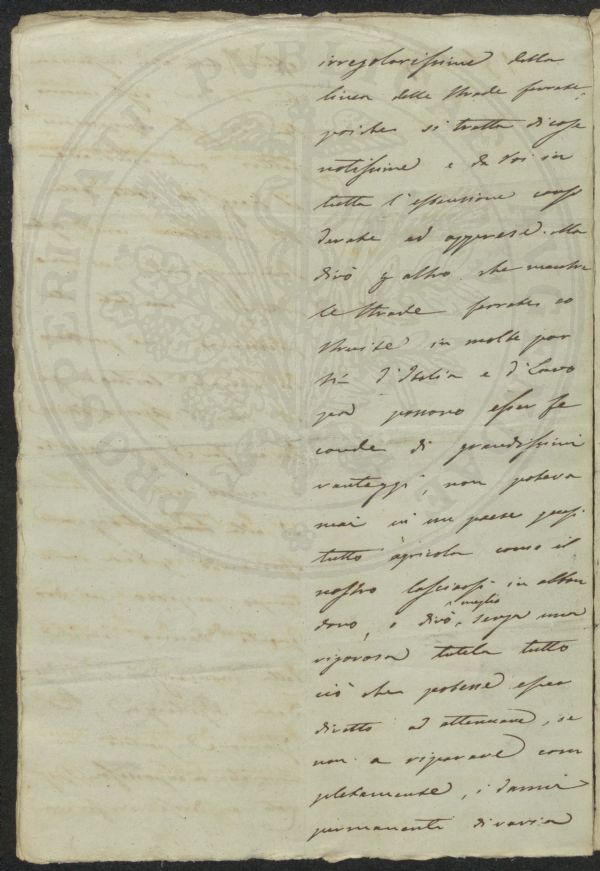 irregolarissime della
linea delle strade ferrate;
poiche si tratta di cose
notissime e da voi in
tutta l'estensione consi
derate ed apprese. Ma
dirò altro che mentre
le strade ferrate co
struite in molte par
ti d'Italia e d'Euro
pa possono esser fe
conde di grandissimi
vantaggi, non poteva
mai in un paese quasi
tutto agricola come il
nostro lasciarsi in abban
dono, o dirò meglio senza una
rigorosa tutela tutto
ciò che potesse esser
diretto ad attenuare, se
non a riparare com
pletamente, i danni
permanenti di varia
PROSPERITATI PUBLICAE